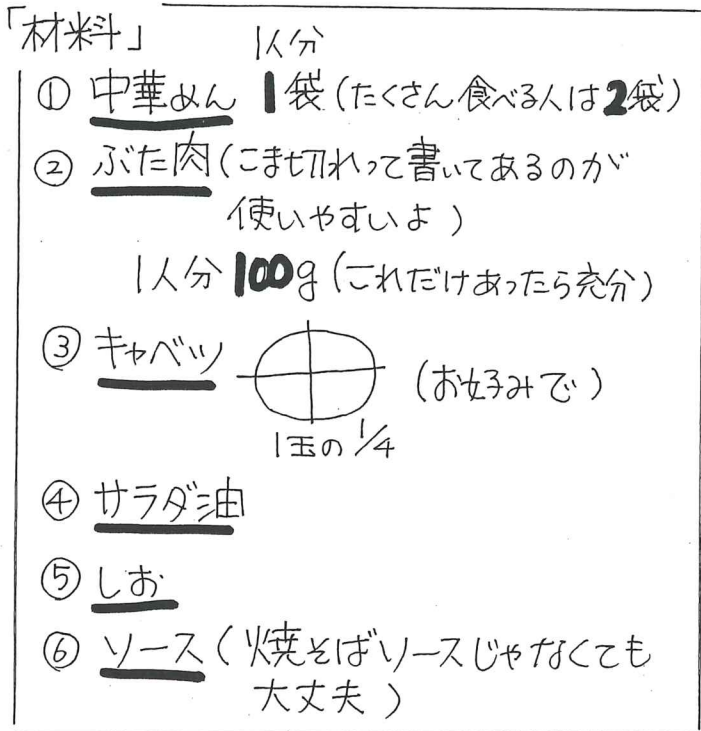 「材料」 1人分
① 中華めん 1袋(たくさん食べる人は2袋)
② ぶた肉(こま切れって書いてあるのが
使いやすいよ)
1人分100g(これだけあったら充分)
③ キャベツ (お好みで)
1玉の1/4
④ サラダ油
⑤ しお
⑥ ソース(焼そばソースじゃなくても
大丈夫)